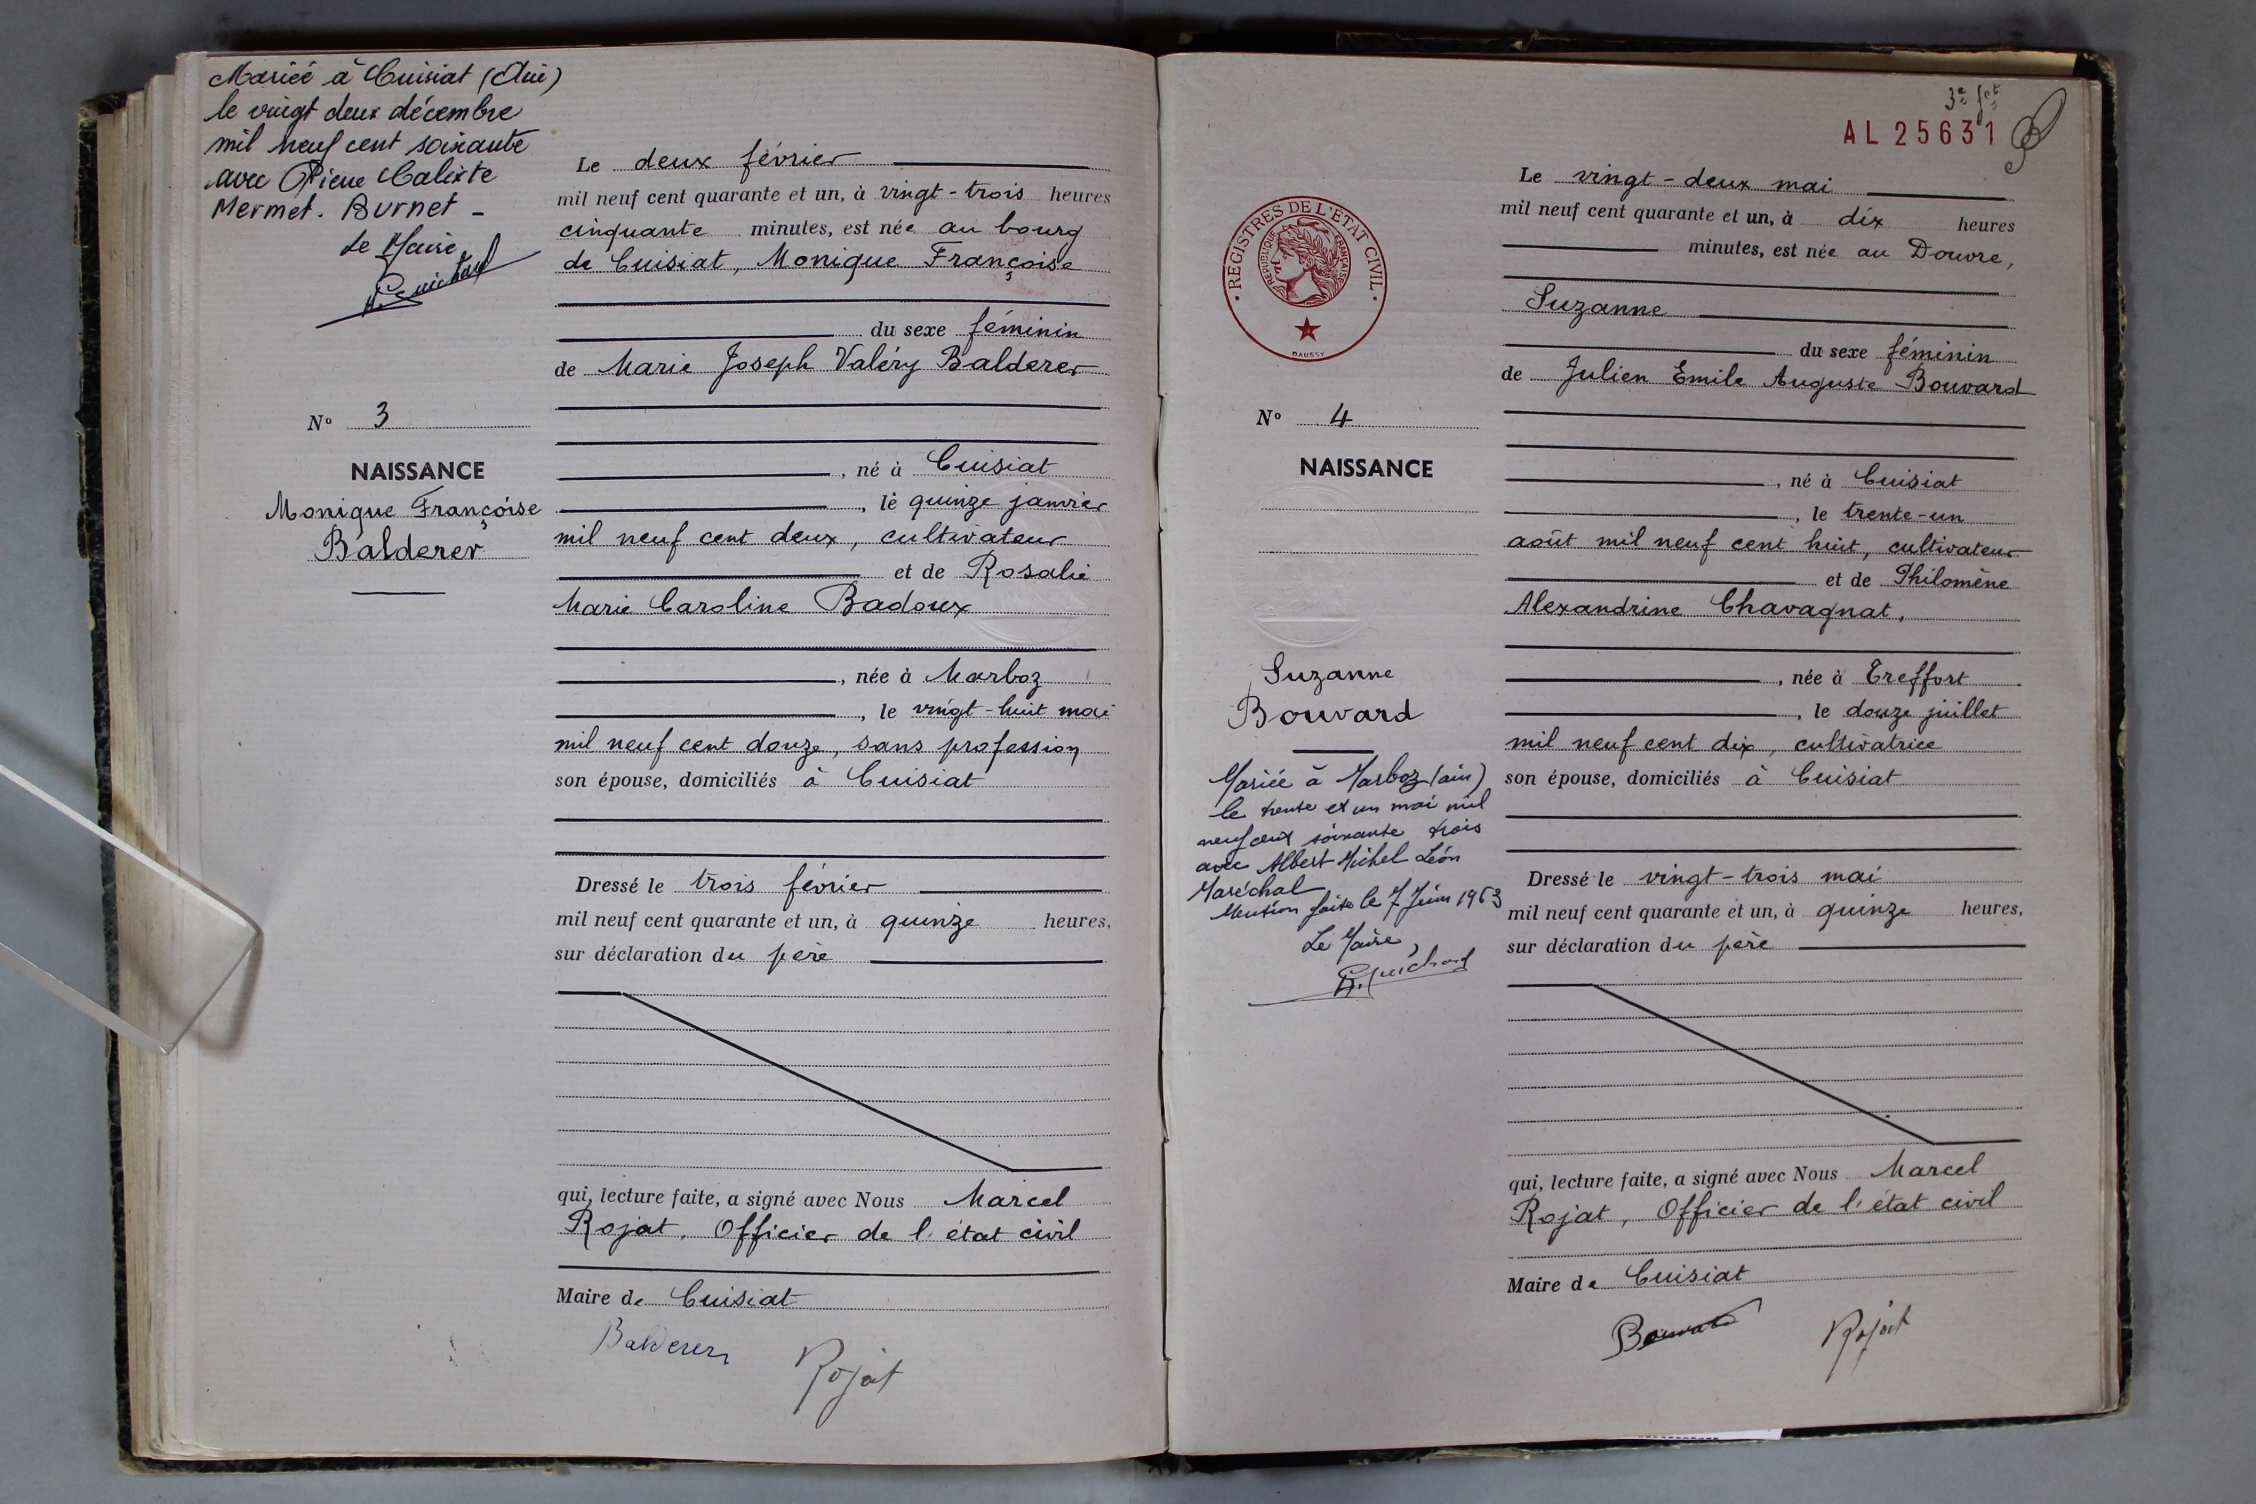 Mariée à Cuisiat (Ain)
le vingt deux décembre
mil neuf cent soixante
avec Pierre Calixte
Mermet. Burnet -
Le Maire
Guichard
Le deux février
mil neuf cent quarante et un, à vingt-trois heures
cinquante minutes, est née au bourg
de Cuisiat, Monique Françoise
du sexe féminin
de Marie Joseph Valéry Balderer
N° 3
NAISSANCE
Monique Françoise
Balderer
, né à Cuisiat
, le quinze janvier
mil neuf cent deux, cultivateur
et de Rosalie
Marie Caroline Badoux
, née à Marboz
, le vingt-huit mai
mil neuf cent douze, sans profession
son épouse, domiciliés à Cuisiat
Dressé le trois février
mil neuf cent quarante et un, à quinze heures,
sur déclaration du père
qui, lecture faite, a signé avec Nous Marcel
Rojat, Officier de l'état civil
Maire de Cuisiat
Balderer
Rojat
3e fet
AL 25631
REGISTRES DE L'ETAT CIVIL
REPUBLIQUE FRANÇAISE
DAUSSY
Le vingt-deux mai
mil neuf cent quarante et un, à dix heures
minutes, est née au Douvre,
Suzanne
du sexe féminin
de Julien Emile Auguste Bouvard
N° 4
NAISSANCE
Suzanne
Bouvard
Mariée à Marboz (ain)
le trente et un mai mil
neuf cent soixante trois
avec Albert Michel Léon
Maréchal
Mention faite le 7 Juin 1963
Le Maire,
Guichard
, né à Cuisiat
, le trente-un
août mil neuf cent huit, cultivateur
et de Philomène
Alexandrine Chavagnat,
, née à Treffort
, le douze juillet
mil neuf cent dix, cultivatrice
son épouse, domiciliés à Cuisiat
Dressé le vingt-trois mai
mil neuf cent quarante et un, à quinze heures,
sur déclaration du père
qui, lecture faite, a signé avec Nous Marcel
Rojat, Officier de l'état civil
Maire de Cuisiat
Bouvard
Rojat